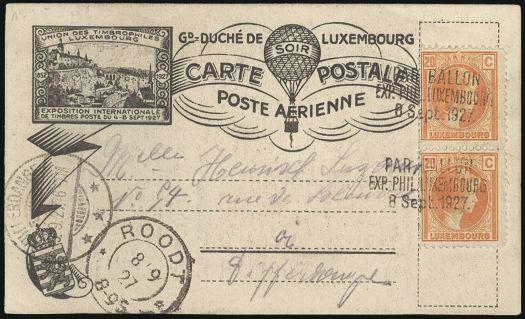 UNION DES TIMBROPHILES
LUXEMBOURG
1852
1927
EXPOSITION INTERNATIONALE
DE TIMBRES POSTE DU 4-8 SEPT 1927
Gᴰ-DUCHÉ DE
LUXEMBOURG
SOIR
CARTE POSTALE
POSTE AÉRIENNE
20 C
LUXEMBOURG
20 C
LUXEMBOURG
PAR BALLON
EXP. PHIL. LUXEMBOURG
8 Sept. 1927.
PAR BALLON
EXP. PHIL. LUXEMBOURG
8 Sept. 1927.
Mlle
No 94 rue de
Differdange
ROODT
8/9
27
8-9S